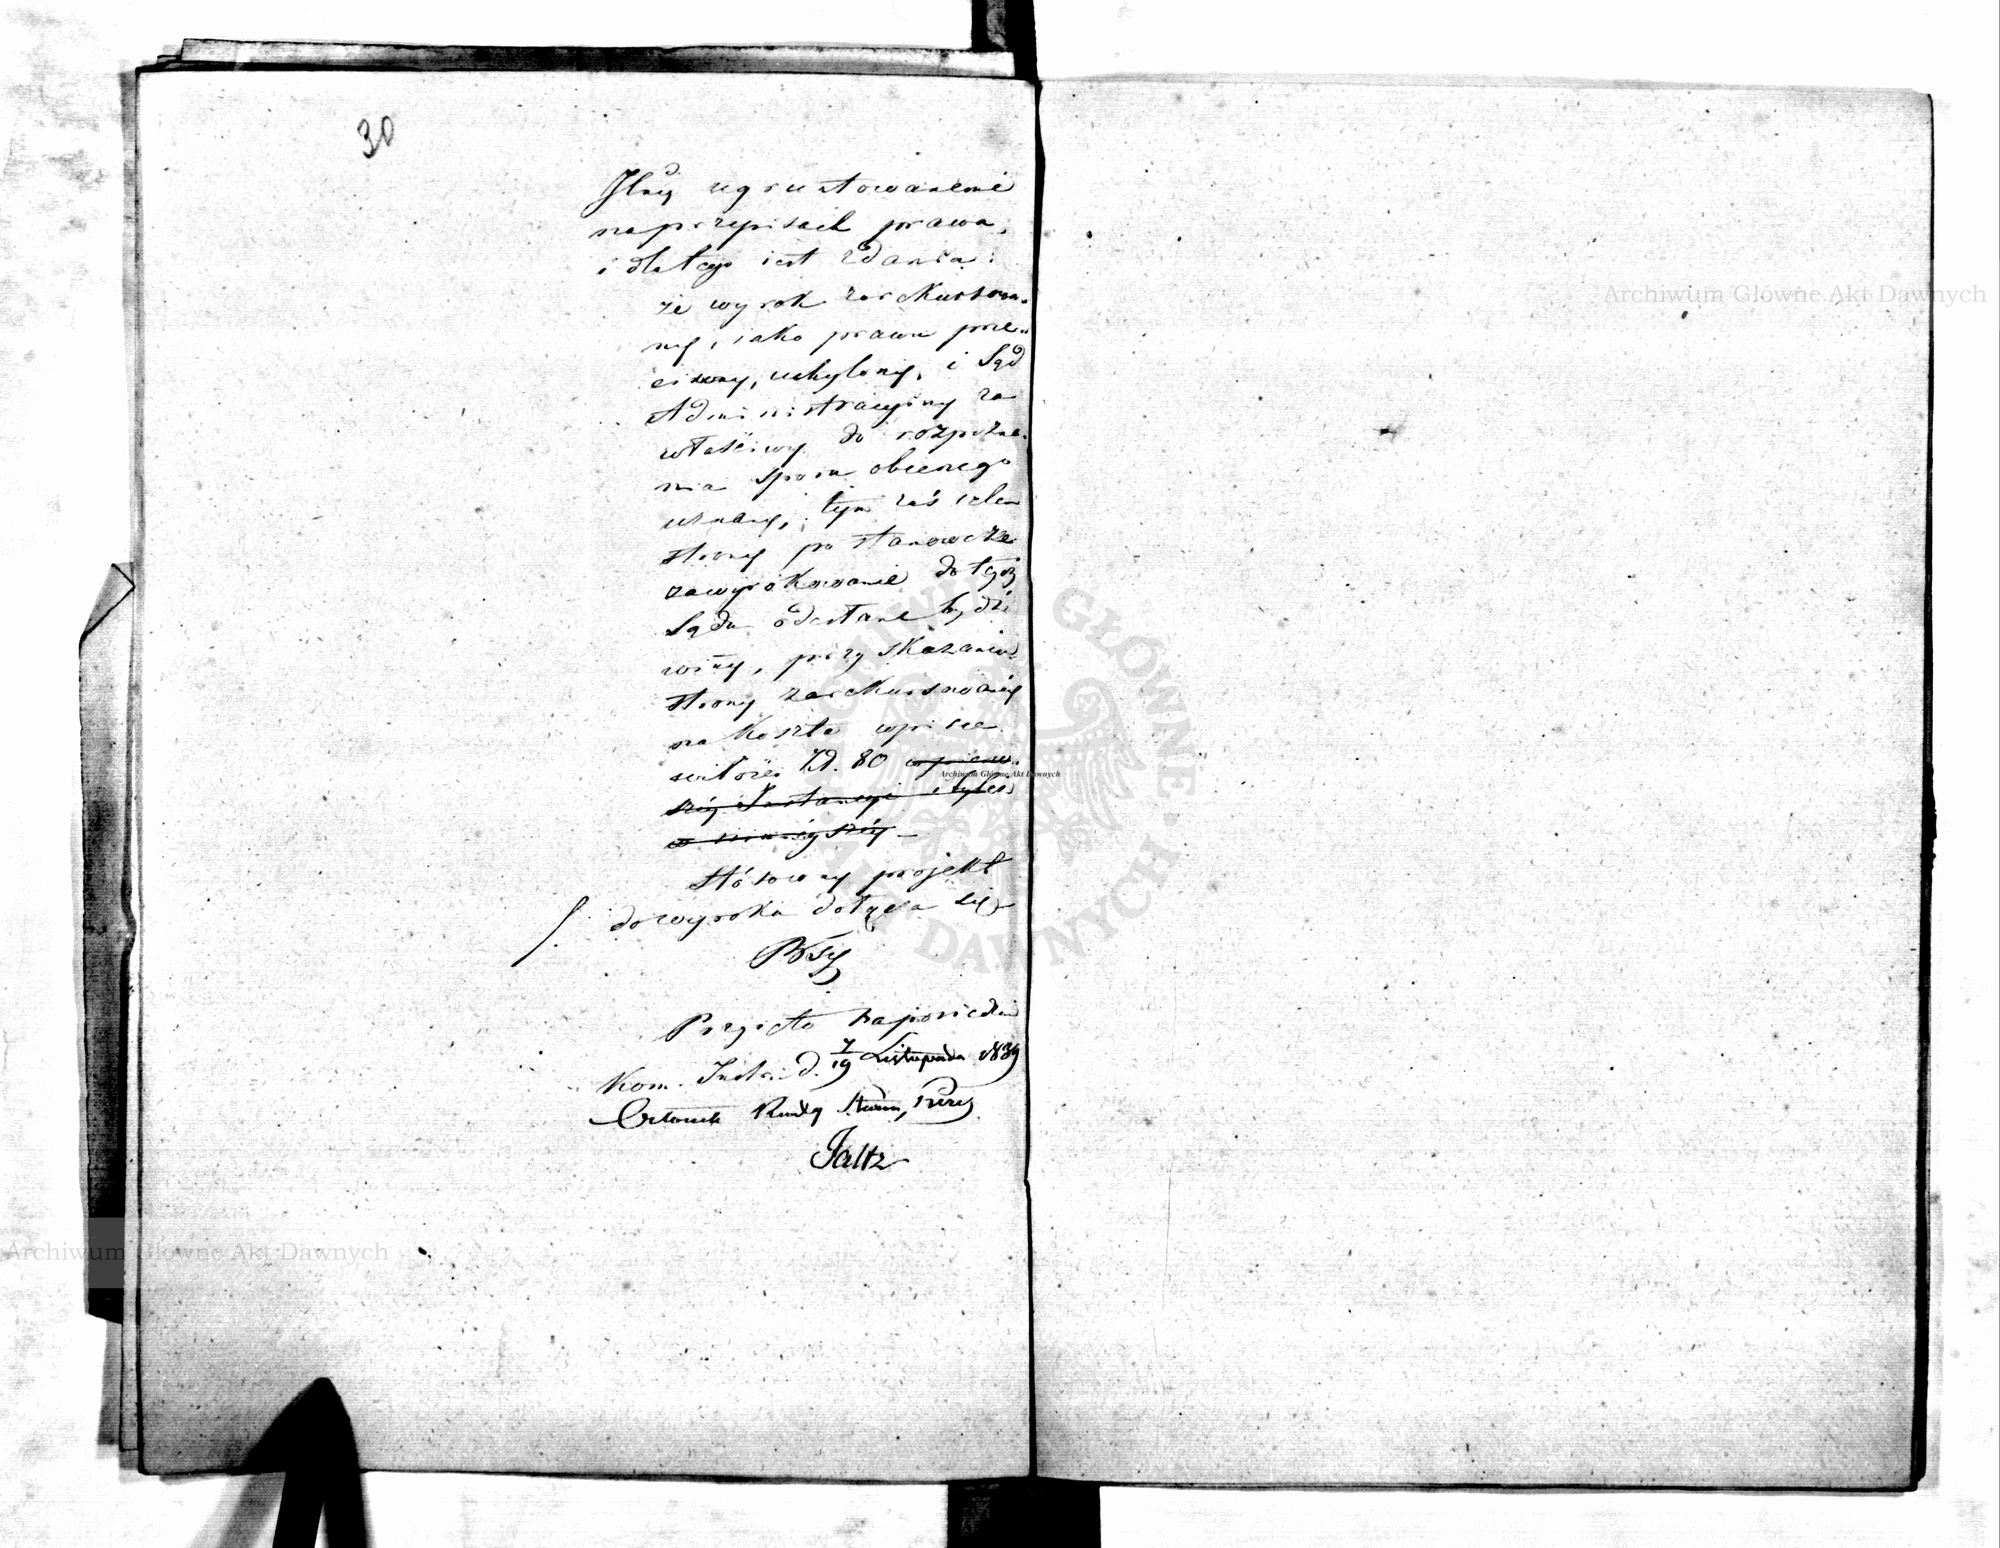 30
ugruntowanemi
na przepisach prawa,
i dla tego iest zdania:
że wyrok zarekurowa-
ny, iako prawu prze-
ciwny, uchylony, i Sąd
Administracyiny za
właściwy do rozpozna-
nia sporu obecnego
uznany, tym zaś celem
strony po stanowcze
zawyrokowanie do tegoż
Sądu odesłane bydź
winny, przy skazaniu
strony zarekursowanéy
na koszta wpisu
w ilości Zł. 80 w pierw-
széy Instancyi i tyleż
w ninieyszéy —
Stósowny projekt
do wyroku dołącza się
Przyięto na posiedzeniu
Kom. Instr. d. 7/19 Listopada 1839
Członek Rady Stanu, Prezes
Faltz
Archiwum Główne Akt Dawnych
Archiwum Główne Akt Dawnych
Archiwum Główne Akt Dawnych
ARCHIWUM GŁÓWNE AKT DAWNYCH